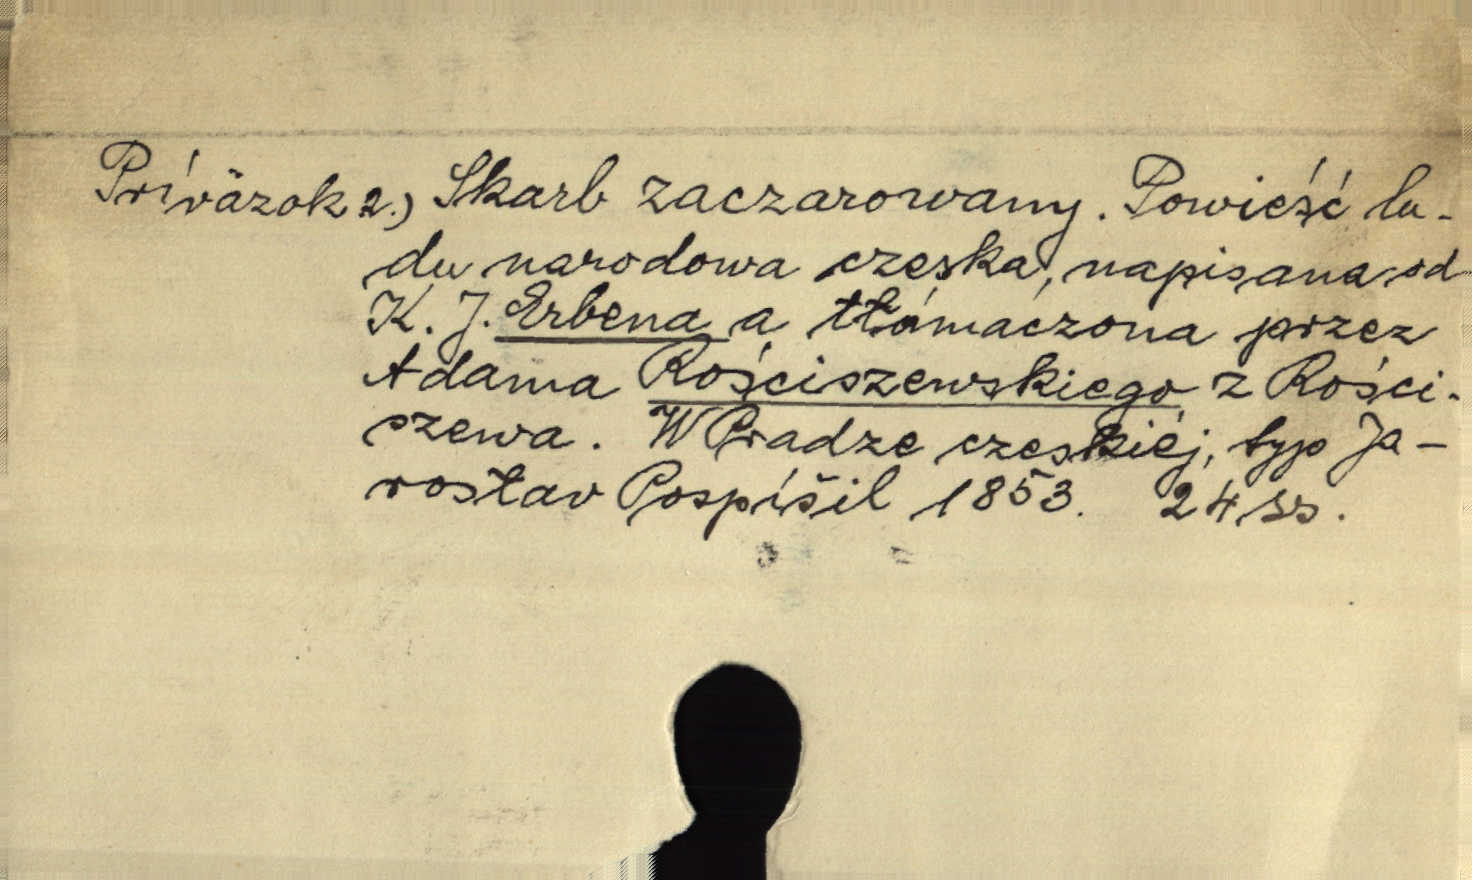 Prívӓzok 2.) Skarb zaczarowany. Powieść lu-
du narodowa czeska, napisana od
K. J. Erbena a tłómaczona przez
Adama Rościszewskiego z Rości-
szewa. W Pradze czeskiéj, typ Ja-
rosłav Pospíšil 1853. 24 ss.